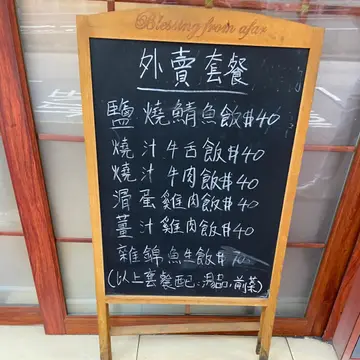 Blessing from afar
外賣套餐
鹽燒鯖魚飯#40
燒汁牛舌飯#40
燒汁牛肉飯#40
滑蛋雞肉飯#40
薑汁雞肉飯#40
雜錦魚生飯#
(以上套餐配:湯品·前菜)